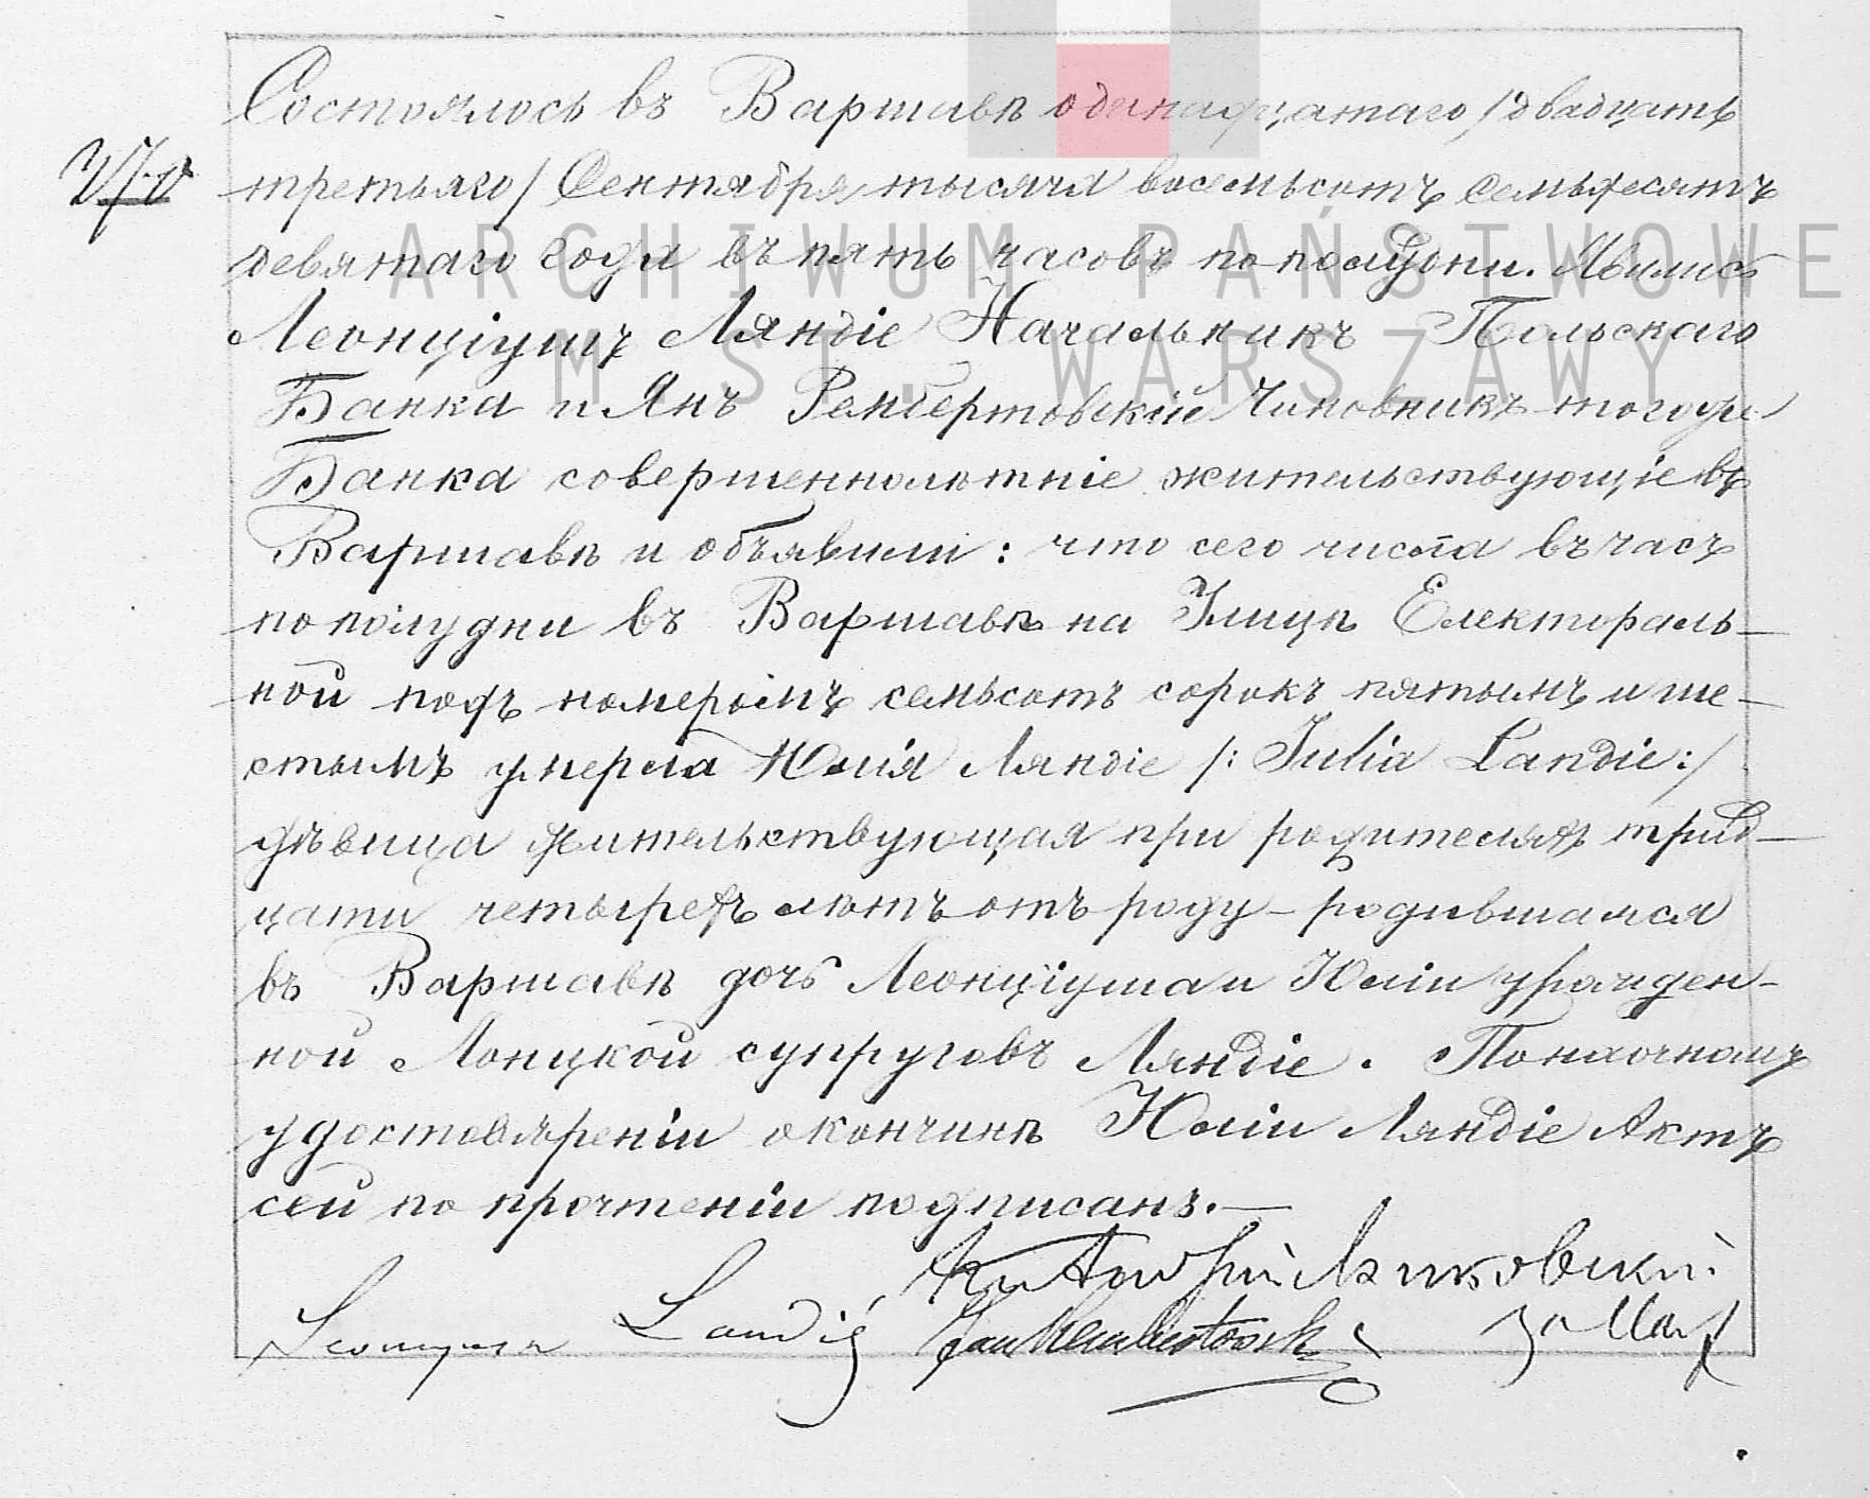 Состоялось въ Варшавѣ одинадцатаго /двадцать
третьяго/ Сентября тысяча восемьсотъ семьдесятъ
девятаго года въ пять часовъ по полудни. Явились
ARCHIWUM PAŃSTWOWE
Леонціушъ Ляндіе Начальникъ Польскаго
M. ST. WARSZAWY
Банка и Янъ Рембертовскій Чиновникъ тогоже
Банка совершеннолѣтніе жительствующіе въ
Варшавѣ и объявили: что сего числа въ часъ
по полудни въ Варшавѣ на Улицѣ Електораль-
ной подъ номеромъ семьсотъ сорокъ пятымъ и ше-
стымъ умерла Юлія Ляндіе /: Julia Landie:/
дѣвица жительствующая при родителяхъ трид-
цати четырехъ лѣтъ отъ роду - родившаяся
въ Варшавѣ дочь Леонціуша и Юліи урожден-
ной Лонцкой супруговъ Ляндіе. По наочномъ
удостовѣреніи о кончинѣ Юліи Ляндіе Актъ
сей по прочтеніи подписанъ.—
Landié Jan Rembertowski